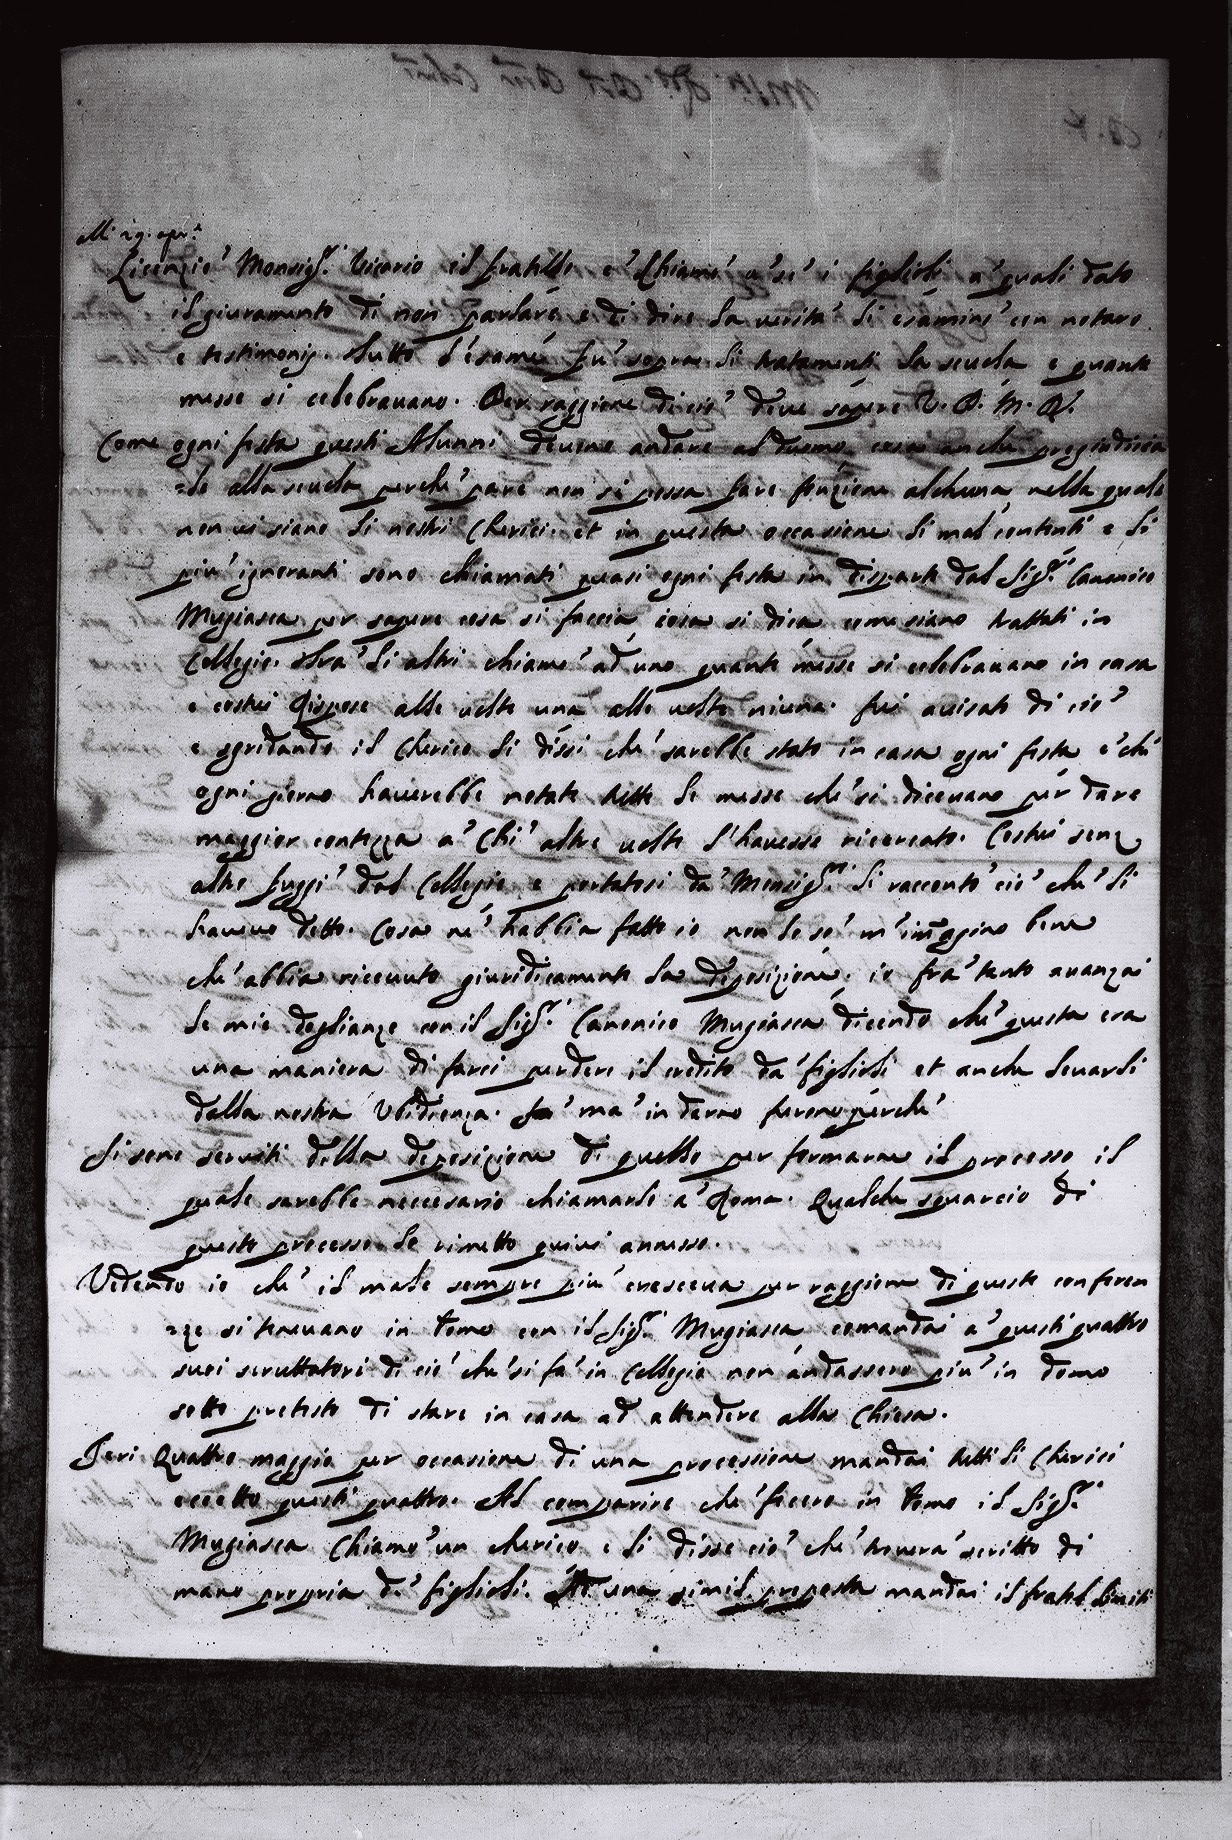 Alli 29. apr.e
Licenziò Monsig.r Vicario il fratello e' chiamò a' sè i figlioli a' quali dato
il giuramento di non parlare e di dire la verità li esaminò con notaro
e testimonij. tutto l'esame fu' sopra li tratamenti la scuola e quante
messe si celebravano. Per raggione di ciò deve sapere V. P. M. R.
Come ogni festa questi Alunni devono andare al duomo cosa anche pregiudicia
=le alla scuola perche' pare non si possa fare funzione alchuna nella quale
non vi siano li nostri Cherici. et in questa occasione li mal contenti e li
piu' ignoranti sono chiamati quasi ogni festa in disparte dal Sig.r Canonico
Mugiasca per sapere cosa si faccia cosa si dica come siano trattati in
Collegio. tra' li altri chiamò ad uno quante messe si celebravano in casa
e costui Rispose alle volte una alle volte niuna. fui avisato di ciò
e sgridando il Cherico li dissi che' sarebbe stato in casa ogni festa e' che'
ogni giorno haverebbe notate tutte le messe che' si dicevano per dare
maggior contezza a' chi' altre volte l'havesse ricercato. Costui senz
altro fuggi' dal Collegio e portatosi da' Monsig.r li raccontò ciò che' li
havevo detto. Cosa ne' habbia fatto io non lo so' m'immagino bene
che' abbia ricevuto giuridicamente la deposizione. io fra' tanto avanzai
le mie doglianze con il Sig.r Canonico Mugiasca dicendo che' questa era
una maniera di farci perdere il credito da' figlioli et anche levarli
dalla nostra Ubidienza. ma' in darno furono perche'
Si sono serviti della deposizione di quello per formarne il processo il
quale sarebbe neccesario chiamarlo a' Roma. Qualche squarcio di
questo processo le rimetto quivi annesso.
Vedendo io che' il male sempre piu' cresceva per raggione di queste conferen
=ze si tenevano in Domo con il Sig.r Mugiasca comandai a' questi quattro
suoi scruttatori di ciò che' si fa' in Collegio non andassero piu' in domo
sotto pretesto di stare in casa ad attendere alla Chiesa.
Jeri Quattro maggio per occasione di una processione mandai tutti li Cherici
eccetto questi quattro. Al comparire che' fecero in Domo il Sig.r
Mugiasca Chiamò un cherico e li disse ciò che' troverà scritto di
mano propria de' figlioli. Ad una simil proposta mandai il fratel